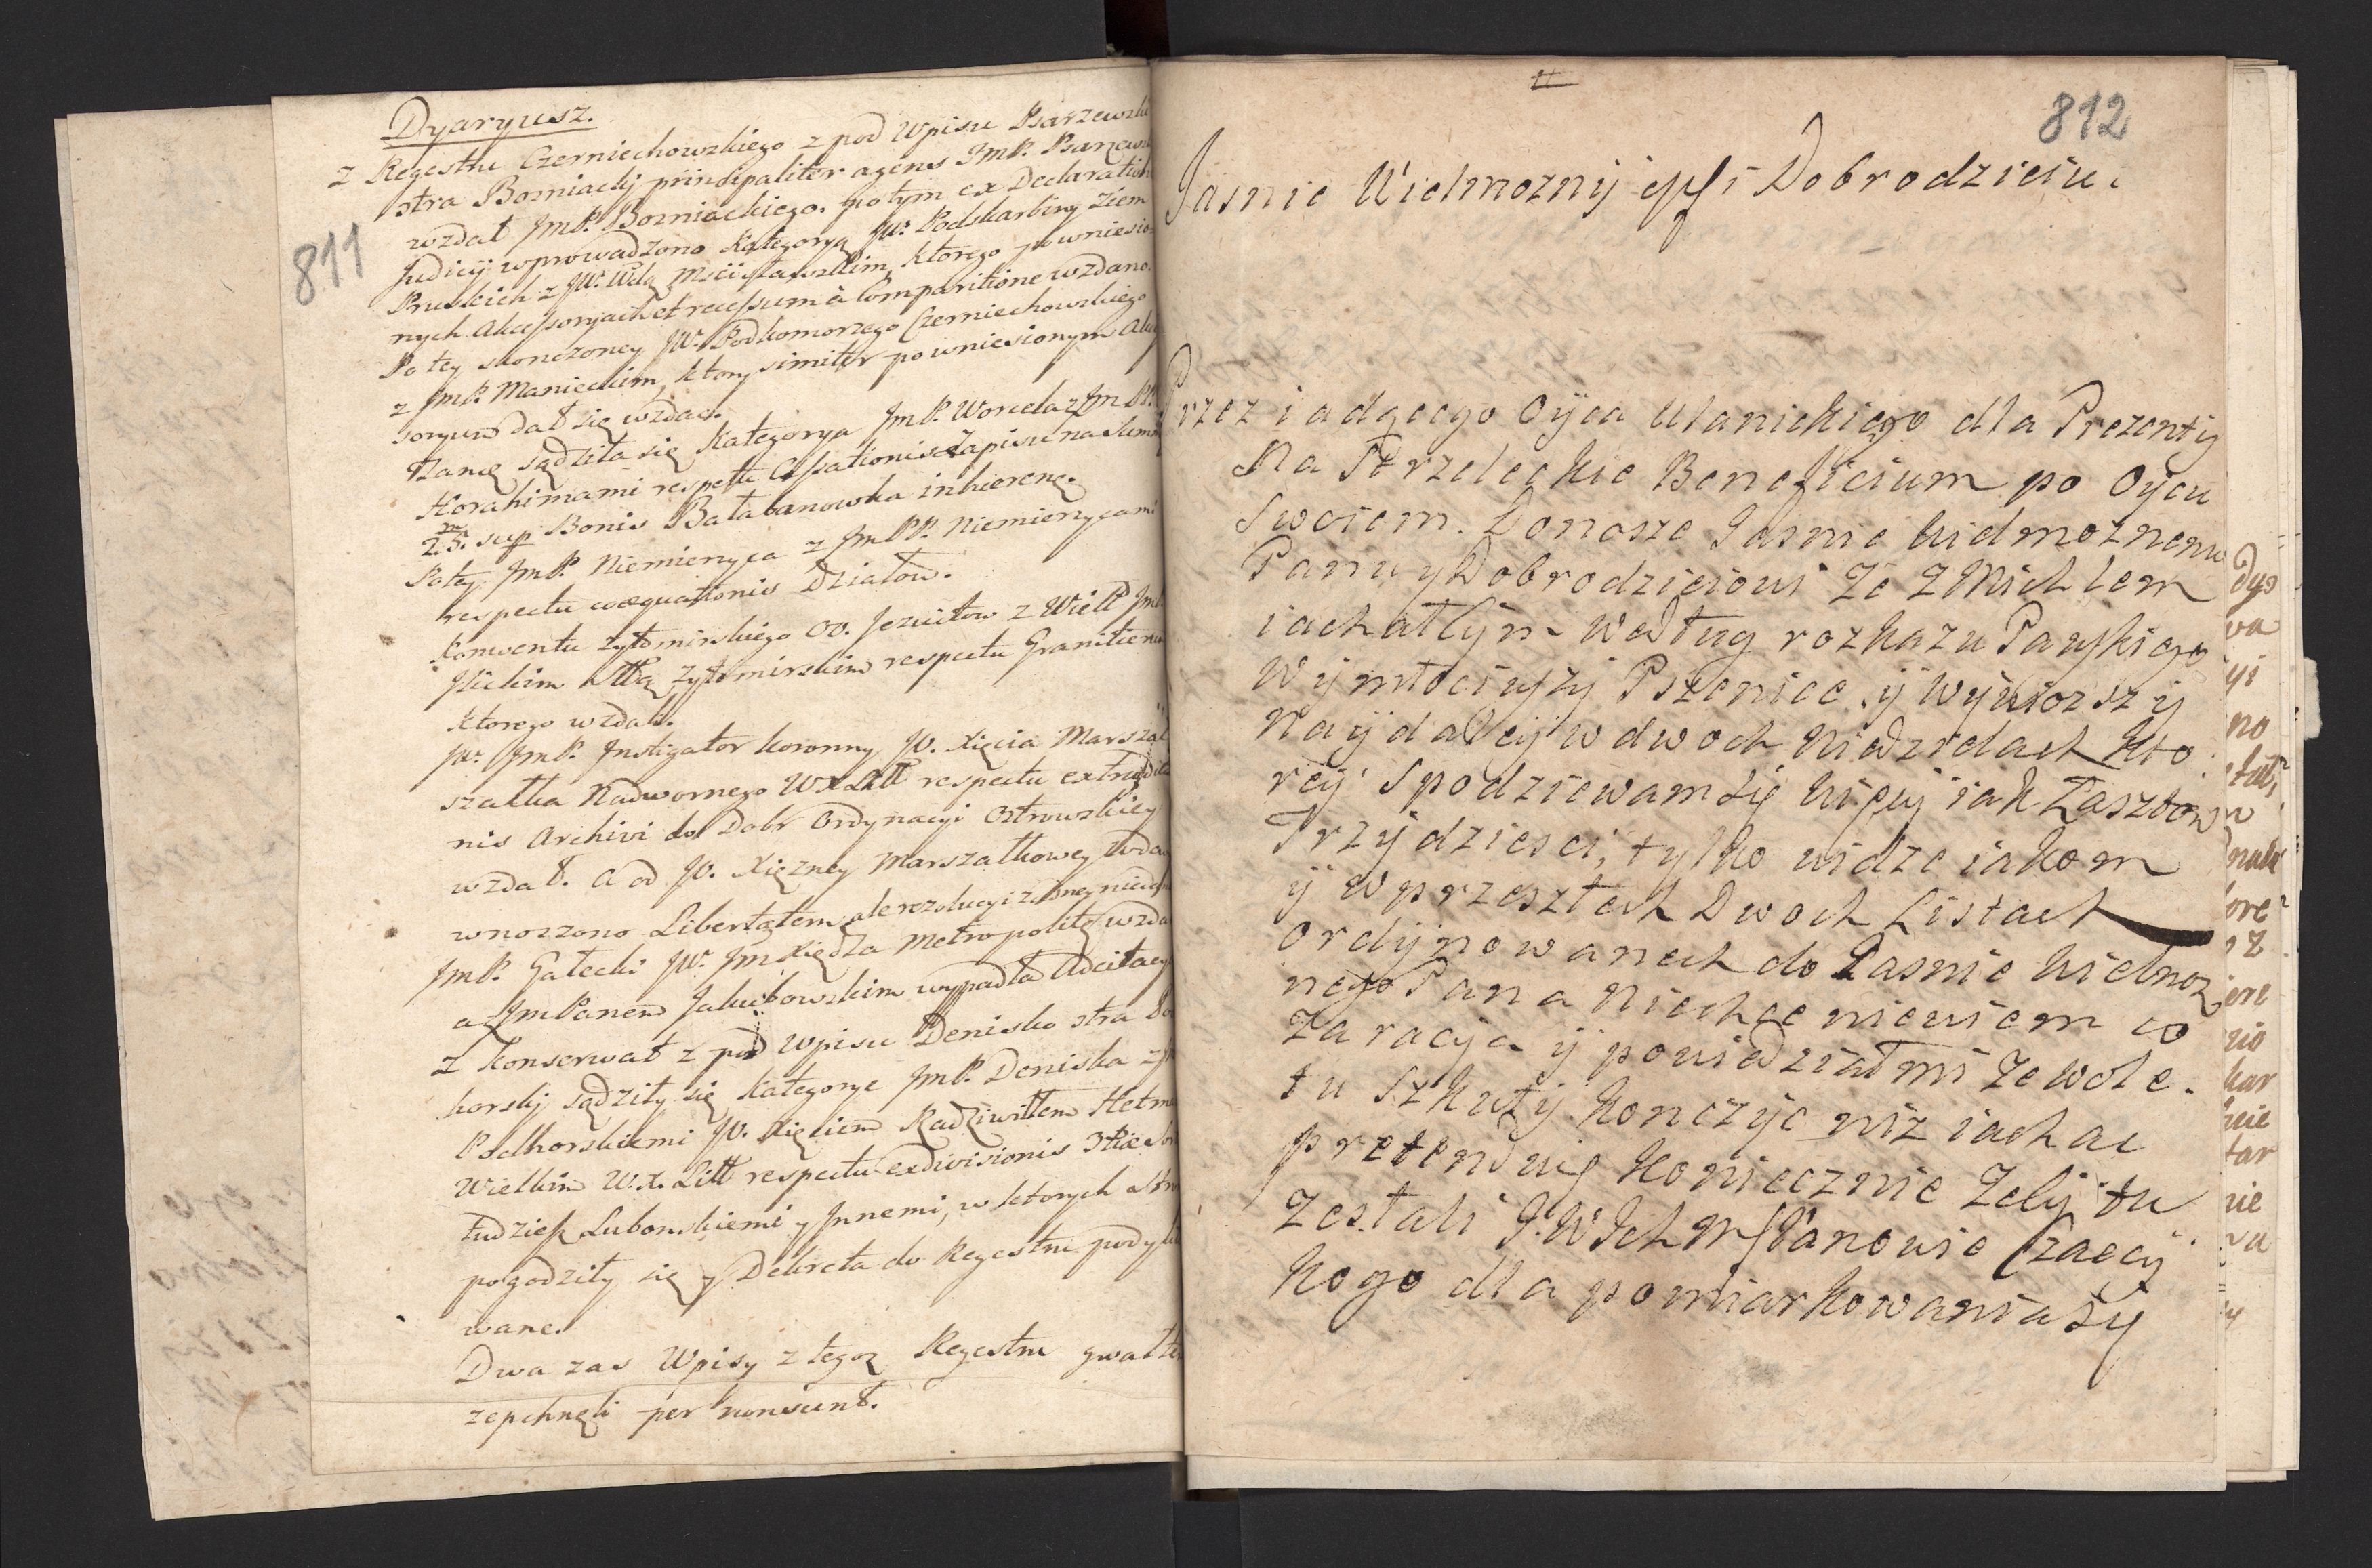 811
Dyaryusz.
z Regestru Czerniechowskiego z pod Wpisu
stra Bozniackij principaliter agens ImP.
wzdał ImP. Bozniackiego. potym ex Declaratione
Judicij wprowadzono Kategoryą JW. Podskarbiny Ziem
Pruskich z JW. Wdą Mscisławskim, ktorego po wniesio
nych Akcessoryach et recessum à Comparitione wzdano.
Po tey skonczoney JW. Podkomorzego Czerniechowskiego
z ImP. Manieckim, ktory similiter po wniesionym
soryum dał się wzdac.
sądziła się Kategorya ImP. Worcela z Im PP.
respectu Cassationis Zapisu na Summę
25. sup Bonis Bałabanowka inhaerenc.
Po tey ImP. Niemieryca z ImPP. Niemierycami
respectu coaequationis Działow.
Konwentu Zytomirskiego OO. Jezuitow z Wiell Im
Ilickim Zytomirskim respectu
ktorego wzdał.
JW. ImP. Instigator Koronny JO. Xięcia Marszał
szałka Nadwornego WXLitt respectu extradi
nis Archivi do Dobr Ordynacyi Ostrowskiey
wzdał. a od JO. Xięzney Marszałkowey
wnoszono Libertatem, ale rezolucyi z
ImP. Gałecki JW. Im Xiędza Metropolitę wzda
a z ImPanem Jakubowskim wypadła Adcitacya
z Konserwat z pod Wpisu Denisko stra Po
horskij sądziły się Kategorye ImP. Deniska z
Podhorskiemi JO. Xięciem Radziwiłłem Hetma
Wielkim W.X. Litt respectu exdivisionis
tudziesz Lubonskiemi y Innemi, w ktorych
pogodziły się y Dekreta do Regestru
wane.
Dwa zas Wpisy z tegoz Regestru
zepchnęli per non sunt.
812
Jasnie Wielmoznij Dobrodzieiu
Przez iadącego Oyca Ulanickiego dla Prezenty
Na Strzeleckie Beneficium po Oycu
Swoiem. Donosze Jasnie Wielmoznemu
Panu y Dobrodzieiowi Ze Z Michlem
iachatbym Według rozkazu Panskiego
Wymłociwszy Pszenice y wywiozszy
Naydaley w dwoch Niedzielach Kto
rey spodziewam się więcy iak Łasztow
Trzydziesci, tylko widze iakom
y w przeszłech Dwoch Listach
ordynowanech do Jasnie Wielmoz
nego Pana Niechce niewiem co
za racya y powiedział mi Ze wole
tu Szkuty konczyc niz iachac
pretenduię Koniecznie Zeby tu
Zestali J.W Ich M Panowie Czaccy
Kogo dla pomiarkowania sy